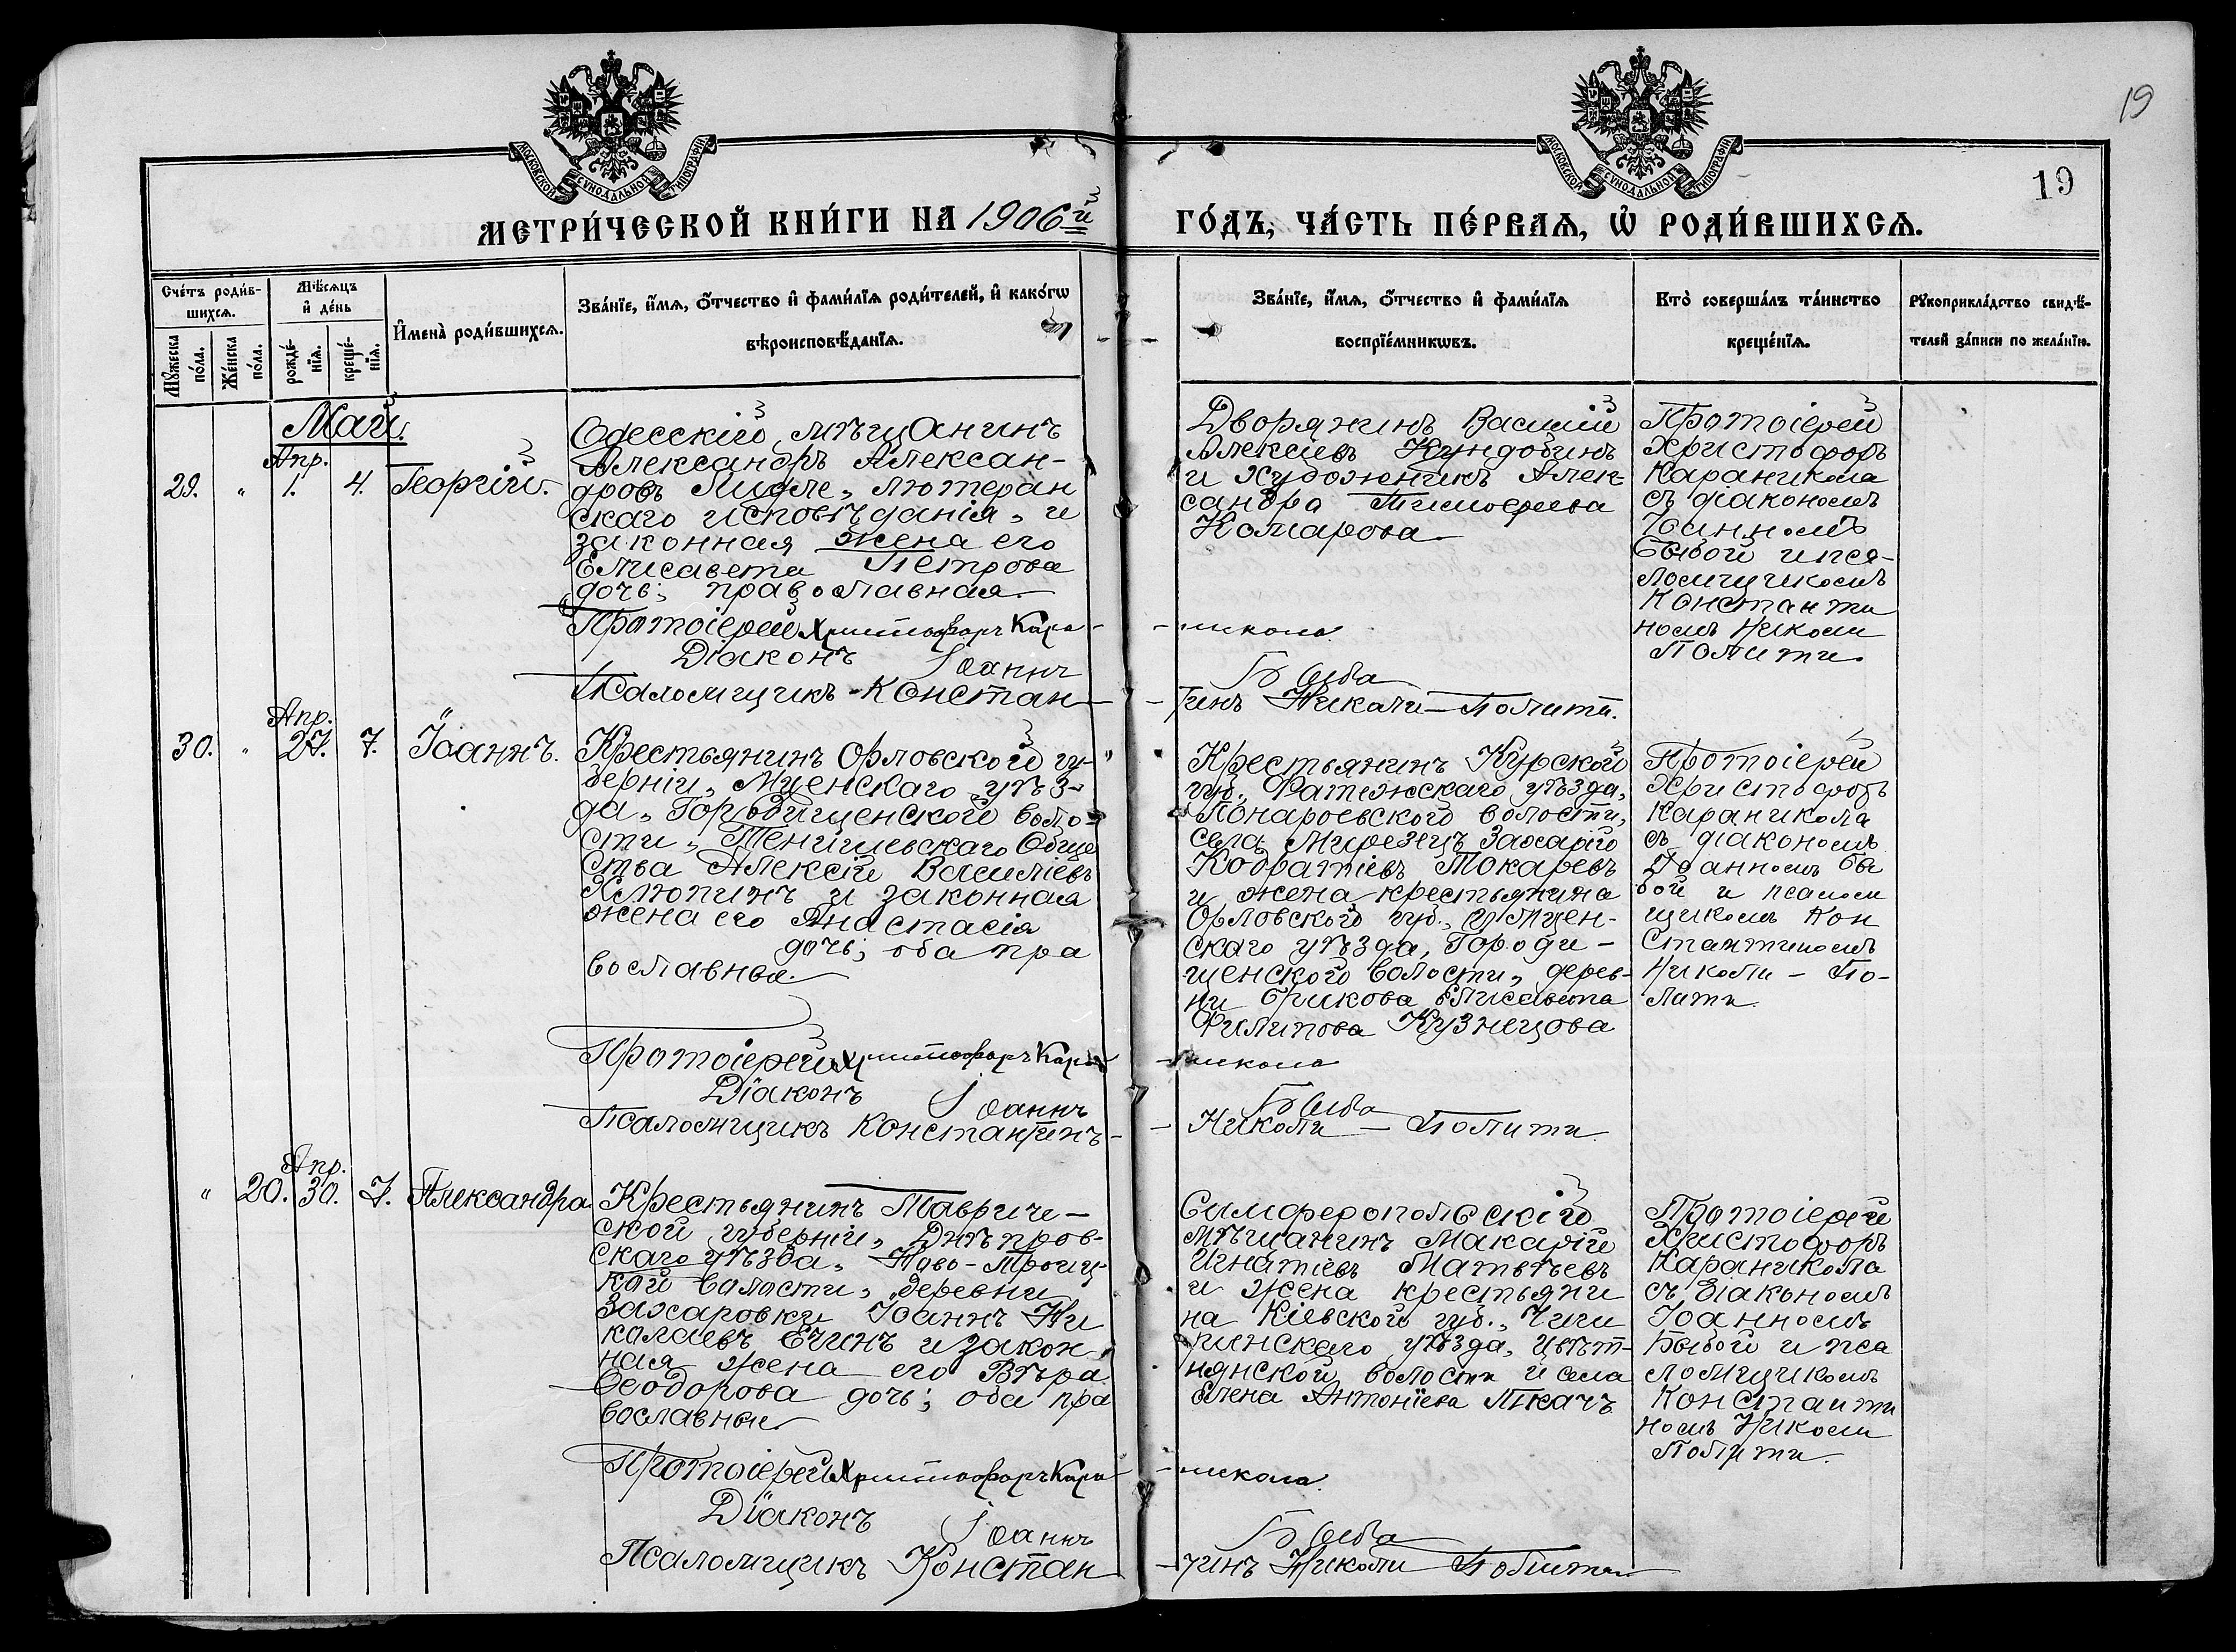 19
19
МОСКОВСКОЙ СѴНОДАЛЬНОЙ ТИПОГРАФІИ
МОСКОВСКОЙ СѴНОДАЛЬНОЙ ТИПОГРАФІИ
МЕТРИ́ЧЕСКОЙ КНИ́ГИ НА 1906й ГО́ДЪ, ЧА́СТЬ ПЕ́РВАѦ, Ѡ҆ РОДИ́ВШИХСѦ.
Сче́тъ роди́в-
шихсѧ.
Мꙋ́жеска по́ла.
Же́нска по́ла.
Мѣ́сѧцъ
и҆ де́нь
рожде́-
нїѧ.
креще́-
нїѧ.
И҆мена̀ роди́вшихсѧ.
Зва́нїе, и҆́мѧ, ѻ҆́тчество и҆ фами́лїѧ роди́телей, и҆ како́гѡ
вѣроисповѣ́данїѧ.
Зва́нїе, и҆́мѧ, ѻ҆́тчество и҆ фами́лїѧ
воспрїе́мникѡвъ.
Кто̀ соверша́лъ та́инство
креще́нїѧ.
Рꙋкоприкла́дство свидѣ́-
телей за́писи по жела́нїю.
Май.
29. " Апр. 1. 4. Георгій.
Одесскій мѣщанинъ
Александръ Алексан-
дровъ Лидле, лютеран
скаго исповѣданія, и
законная жена его
Елисавета Петрова
дочь; православная.
Дворянинъ Василій
Алексіевъ Кундобинъ
и художникъ Алек-
сандра Тимофеева
Комарова
Протоіерей
Христофоръ
Караникола
съ діакономъ
Іоанномъ
Быбой и пса-
ломщикомъ
Константи
номъ Николи
Полити.
Протоіерей Христофоръ Кара- -никола
Діаконъ Іоаннъ Быба
Псаломщикъ Констан- -тинъ Николи-Полити.
30. " Апр. 27. 7. Іоаннъ.
Крестьянинъ Орловской гу-
берніи, Мценскаго уѣз-
да, Городищенской воло-
сти, Тенишевскаго Обще
ства Алексій Василіевъ
Хлюпинъ и законная
жена его Анастасія
дочь; оба пра
вославные.
Крестьянинъ Курской
губ. Фатежскаго уѣзда,
волости,
села Захарій
Кодратіевъ Токаревъ
и жена крестьянина
Орловской губ., Мцен-
скаго уѣзда, Городи-
щенской волости, дерев-
ни Елисавета
Филипова Кузнецова
Протоіерей
Христофоръ
Караникола
съ діакономъ
Іоанномъ Бы
бой и псалом
щикомъ Кон
стантиномъ
Николи - По-
лити.
Протоіерей Христофоръ Кара- -никола
Діаконъ Іоаннъ Быба
Псаломщикъ Константинъ- - Николи - Полити
" 20. Апр. 30. 7. Александра
Крестьянинъ Тавриче-
ской губерніи, Днѣпров-
скаго уѣзда, Ново-Троиц-
кой волости, деревни
Захаровки Іоаннъ Ни
колаевъ Ечинъ и закон
ная жена его Вѣра
Ѳеодорова дочь; оба пра
вославные
Симферопольскій
мѣщанинъ Макарій
Игнатіевъ Матвѣевъ
и жена крестьяни
на Кіевской губ., Чиги
ринскаго уѣзда, Цвѣт-
нянской волости и села
Елена Антоніева Ткачъ
Протоіерей
Христофоръ
Караникола
съ діакономъ
Іоанномъ
Быбой и пса
ломщикомъ
Константи
номъ Николи
Полити.
Протоіерей Христофоръ Кара- -никола.
Діаконъ Іоаннъ Быба
Псаломщикъ Констан -тинъ Николи Полити